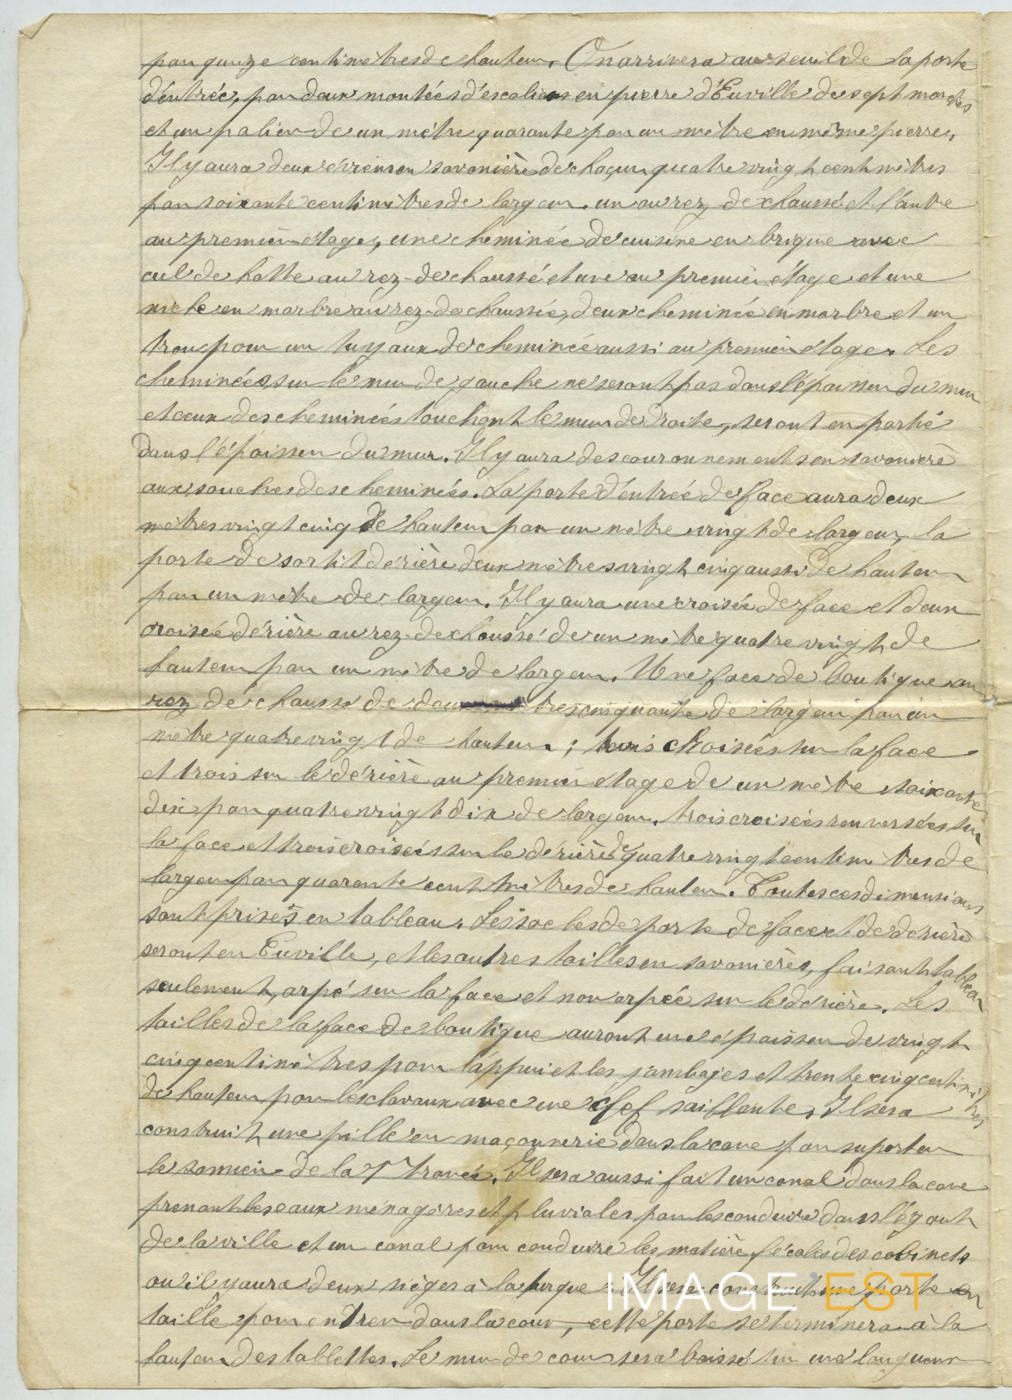 par quinze centimètres de hauteur. On arrivera au seuil de la porte
d'entrée, par deux montées d'escaliers en pierre d'Euville de sept marches
et un palier de un mètre quarante par un mètre en même pierre,
Il y aura deux éviers en savonière de chaqun quatre vingt centimètres
par soixante centimètres de largeur. un au rez de chaussé et l'autre
au premier étage, une cheminée de cuisine en brique avec
cul de hotte au rez-de chaussé et une au premier étage et une
niche en marbre au rez-de chaussée, deux cheminée en marbre et un
trou pour un tuyaux de cheminée aussi au premier étage. Les
cheminées sur le mur de gauche ne seront pas dans l'épaisseur du mur
et ceux des cheminées touchant le mur de droite, seront en partie
dans l'épaisseur du mur. Il y aura des couronnements en savonière
aux souches des cheminées. La porte d'entrée de face aura deux
mètres vingt cinq de hauteur par un mètre vingt de largeur, la
porte de sortit dérière deux mètres vingt cinq aussi de hauteur
par un mètre de largeur. Il y aura une croisée de face et deux
croisée dérière au rez-de chaussé de un mètre quatre vingt de
hauteur par un mètre de largeur. Une face de boutique au
rez de chaussé de deux mètres cinquante de largeur par un
mètre quatre vingt de hauteur; trois choisées sur la face
et trois sur le dérière au premier étage de un mètre soixante
dix par quatre vingt dix de largeur. trois croisées renversées sur
la face et trois croisées sur le dérière de quatre vingt centimètres de
largeur par quarante centimètres de hauteur. Toutes ces dimensions
sont prises en tableau. Les socles de porte de face et de dérière
seront en Euville, et les autres tailles en savonières, faisant tableau
seulement, arpé sur la face et non arpée sur le dérière. Les
tailles de la face de boutique auront une épaisseur de vingt
cinq centimètres pour l'appui et les jambages et trente cinq centimètres
de hauteur pour les clavaux avec une clef saillante, Il sera
construit une pille en maçonnerie dans la cave pour suporter
le somier de la 1re travée. Il sera aussi fait un canal dans la cave
prenant les eaux ménagères et pluviales pour les conduire dans l'égout
de la ville et un canal pour conduire les matière fécales des cabinets
ou il y aura deux sièges à la turque. Il sera construit une porte en
taille pour entrer dans la cour, cette porte se terminera à la
hauteur des tablettes. Le mur de cour sera baissé sur une longueur
IMAGE'EST